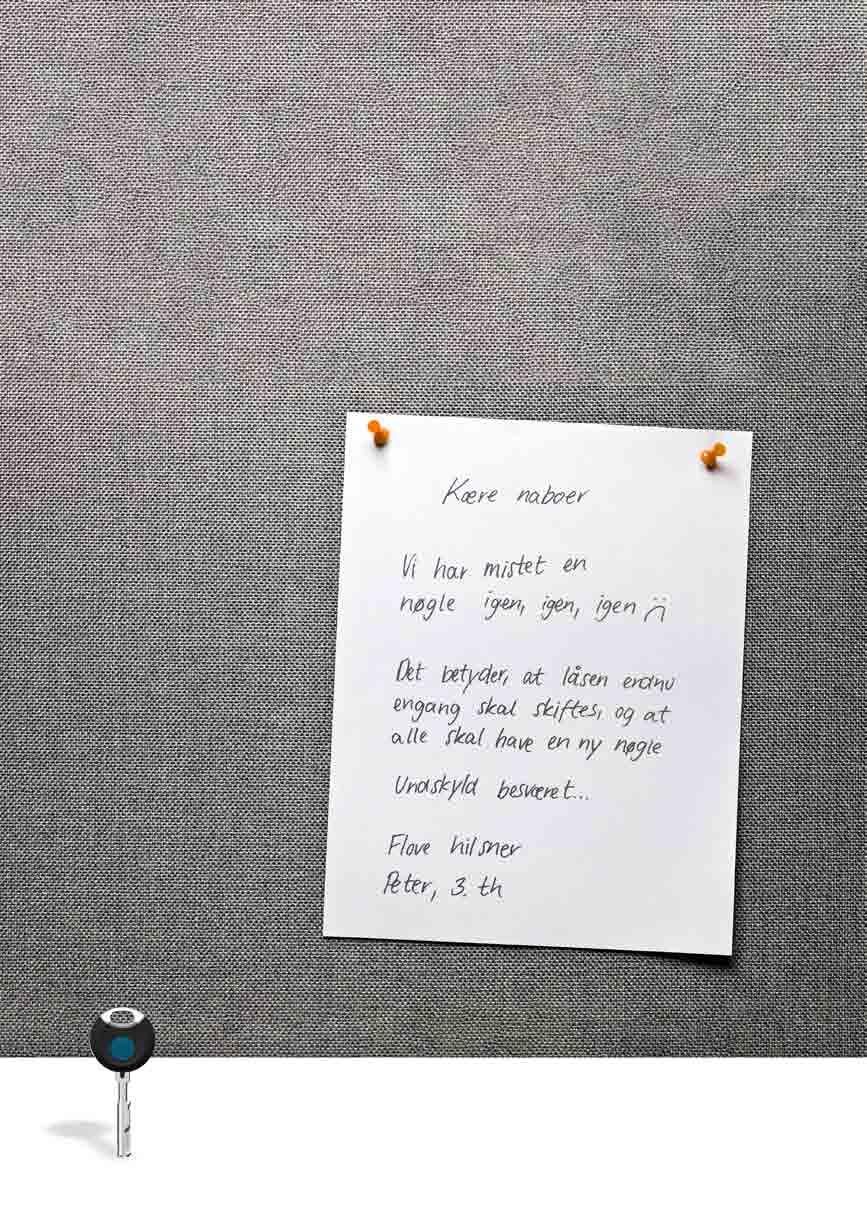 Kære naboer
Vi har mistet en
nøgle igen, igen, igen :(
Det betyder, at låsen endnu
engang skal skiftes, og at
alle skal have en ny nøgle
Undskyld besværet...
Flove hilsner
Peter, 3. th